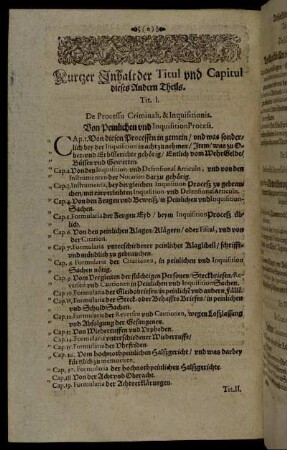 Kurtzer Inhalt der Titul vnd Capitul
dieses Andern Theils.
Tit. I.
De Processu Criminali, & Inquisitionis.
Von Peinlichen vnd Inquisition Proceß.
CAp. 1. Von diesen Processen in gemein / vnd was sonder-
lich bey der Inquisition in acht zunehmen / Item / was zu O-
ber- vnd Erbgerichte gehörig / Entlich vom Wehr Gelde /
Büssen vnd Gewetten.
Cap. 2. Von den Inquisition vnd Defensional Articuln / vnd von den
Instrumenten der Notarien darzu gehörig.
Cap. 3. Instrumenta, bey dergleichen Inquisition Proceß zu gebrau-
chen, mit einverleibten Inquisition vnd Defensional Articuln.
Cap. 4. Von den Zeugen vnd Beweiß / in Peinlichen vnd Inquisition-
Sachen.
Cap. 5. Formularia der Zeugen Eyd / beym Inquisition Proceß üb-
lich.
Cap. 6. Von den peinlichen Klagen / Klägern / oder Fiscal, vnd von
der Citation.
Cap. 7. Formularia vnterschiedener peinlicher Klaglibell / schrifft-
vnd mündlich zu gebrauchen.
Cap. 8. Formularia der Citationen, in peinlichen vnd Inquisition
Sachen nötig.
Cap. 9. Von Vergleiten der flüchtigen Personen / Steckbriefen / Re-
versen vnd Cautionen in Peinlichen vnd Inquisition Sachen.
Cap. 10. Formularia der Gleidsbriefe in peinliche vnd andern Fällē.
Cap. 11. Formularia der Steck- oder Behaffts Briefen / in peinlichen
vnd Schuld Sachen.
Cap. 12. Formularia der Reversen vnd Cautionen, wegen Loßlassung
vnd Absolgung der Gefangenen.
Cap. 13. Von Wiederruffen vnd Vrpheden.
Cap. 14. Formularia vnterschiedener Wiederruffe /
Cap. 15. Formularia der Vhrfrieden
Cap. 16. Vom hochnothpeinlichen Halßgericht / vnd was darbey
kürtzlich zu memoriren.
Cap. 17. Formularia der hochnothpeinlichen Halßgerichte.
Cap. 18. Von der Acht vnd Oberacht.
Cap. 19. Formularia der Achtserklärungen.
Tit. II.